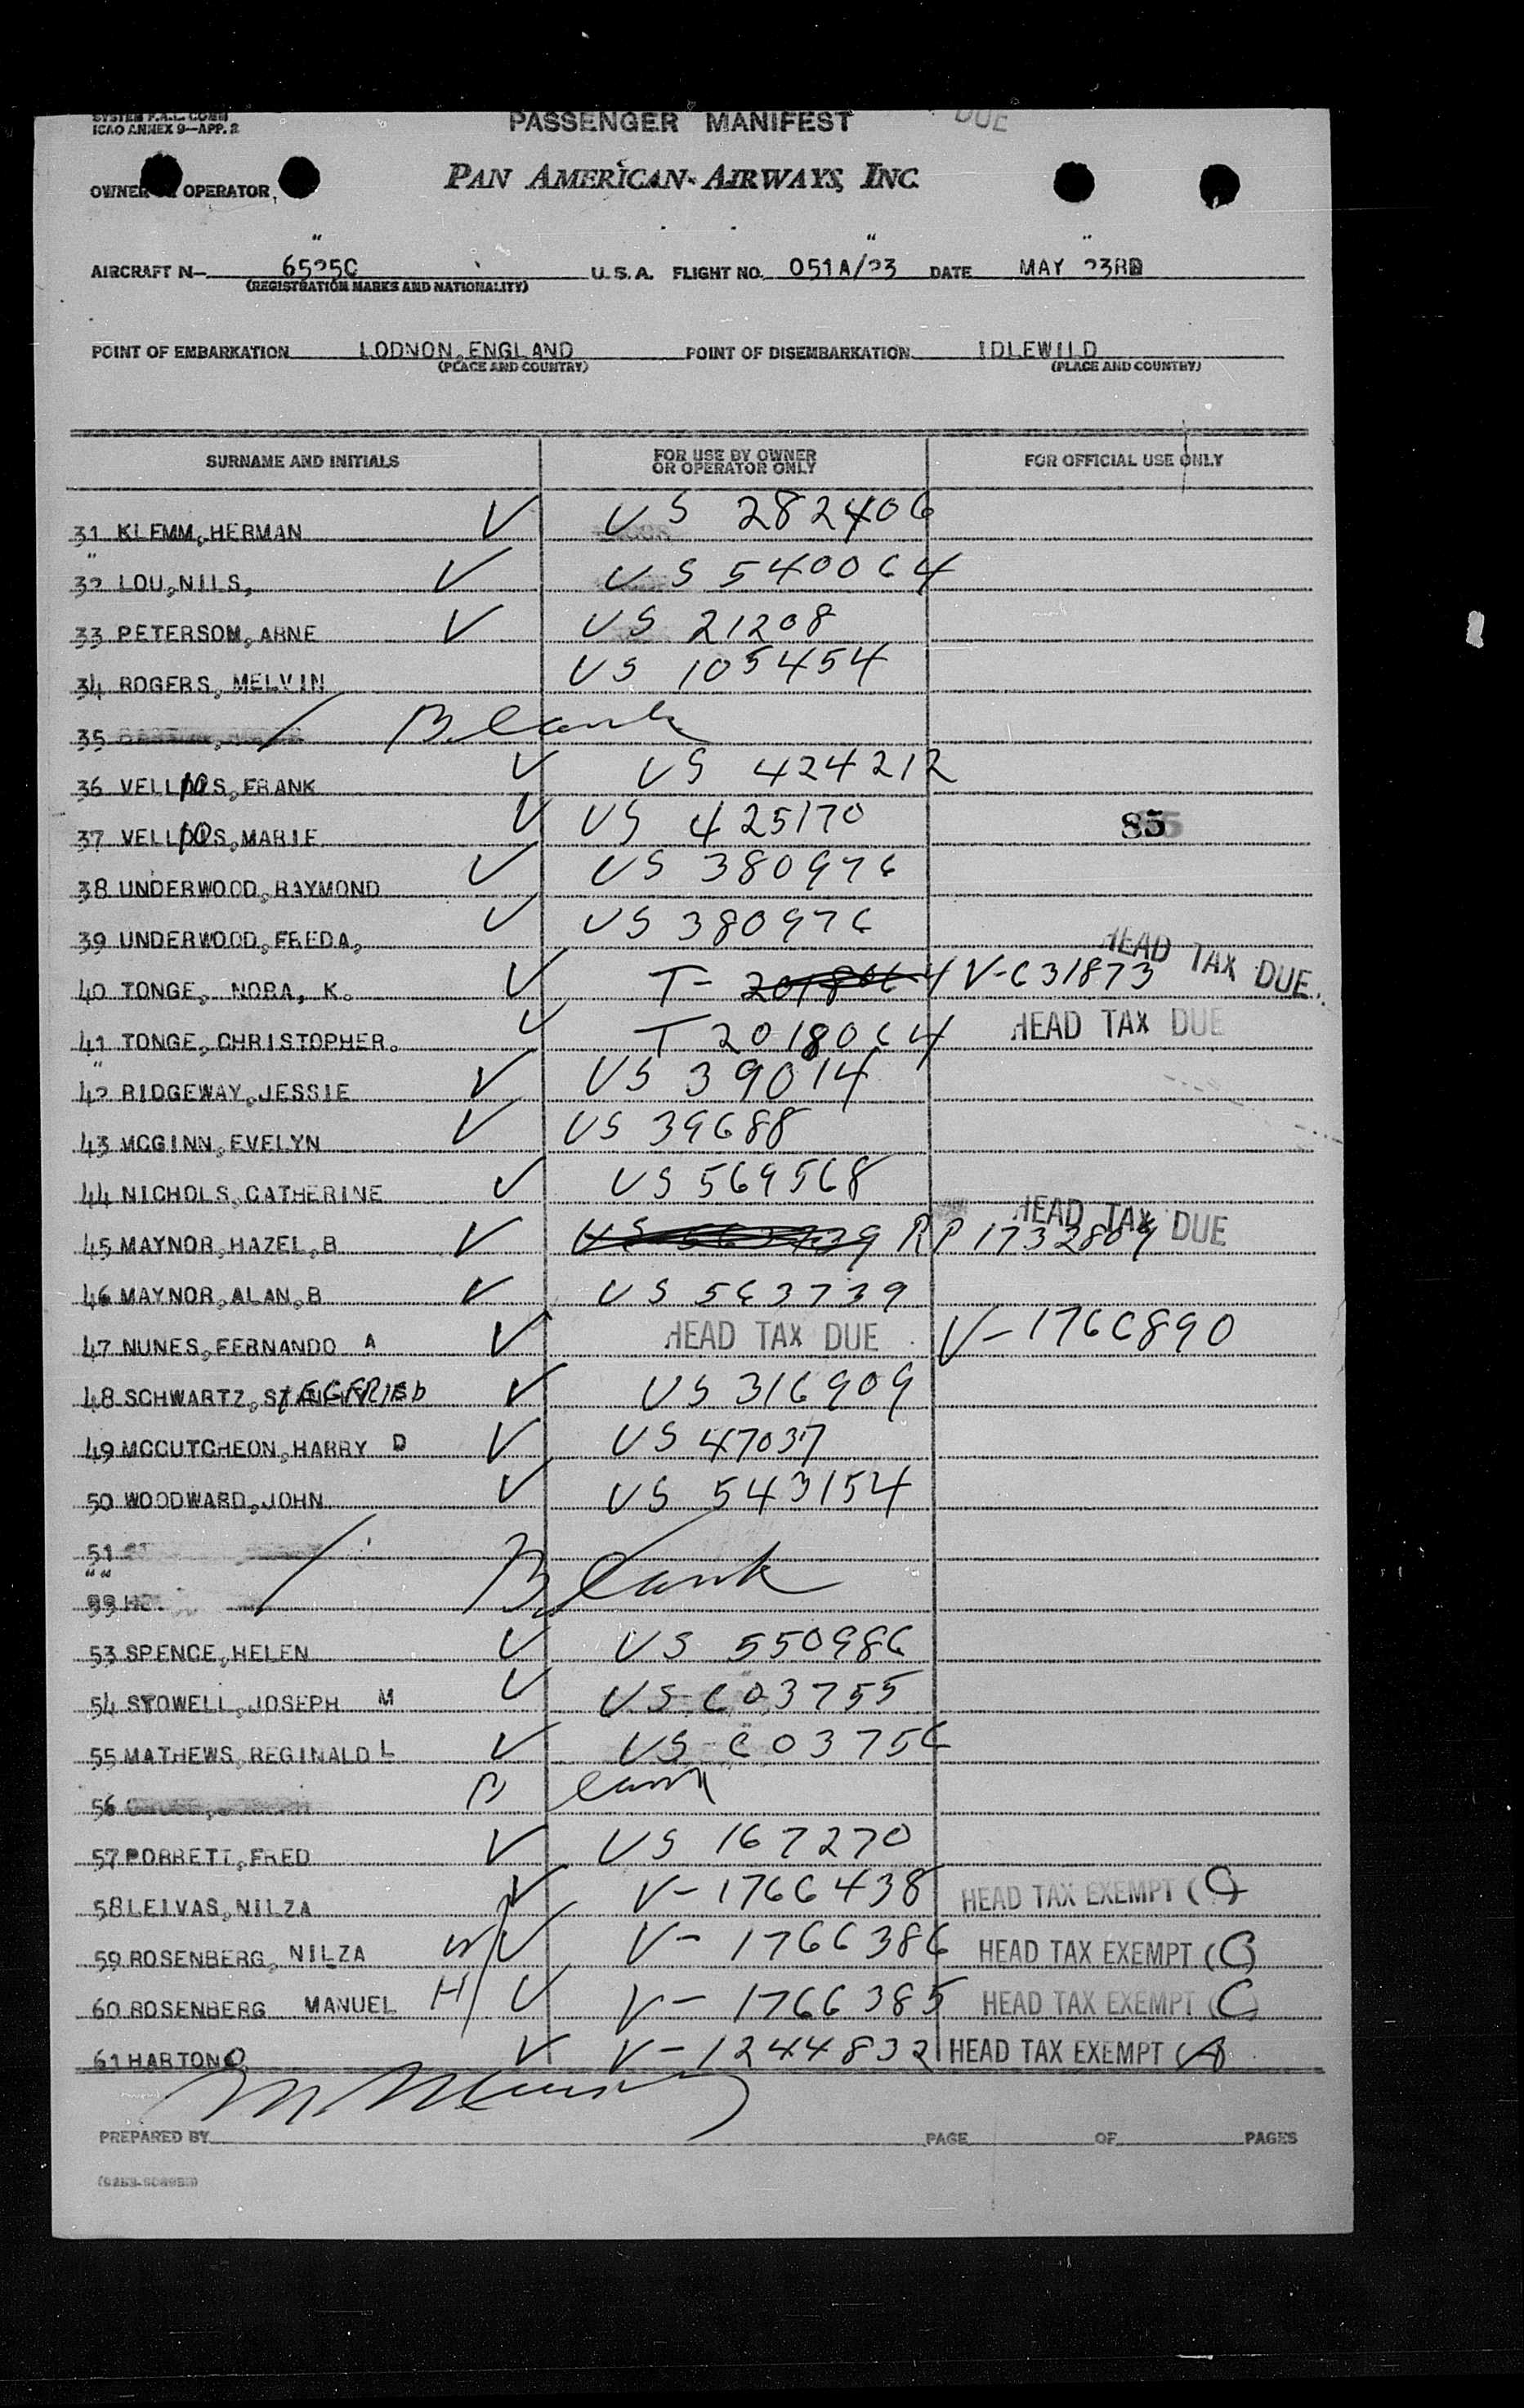 SYSTEM P.A.L. COMB
ICAO ANNEX 9—APP. 2
PASSENGER MANIFEST
DUE
OWNER OPERATOR
PAN AMERICAN AIRWAYS, INC.
AIRCRAFT N— 6525C U.S.A. FLIGHT NO. 051A/23 DATE MAY 23RD
(REGISTRATION MARKS AND NATIONALITY)
POINT OF EMBARKATION LODNON, ENGLAND POINT OF DISEMBARKATION IDLEWILD
(PLACE AND COUNTRY) (PLACE AND COUNTRY)
SURNAME AND INITIALS FOR USE BY OWNER OR OPERATOR ONLY FOR OFFICIAL USE ONLY
31 KLEMM, HERMAN V US 282406
32 LOU, NILS, V US 540064
33 PETERSON, ARNE V US 21208
34 ROGERS, MELVIN US 105454
35 Blank
36 VELLIOS, FRANK V US 424212
37 VELLIOS, MARIE V US 425170 85
38 UNDERWOOD, RAYMOND V US 380976
39 UNDERWOOD, FREDA, V US 380976
40 TONGE, NORA, K. V T- 2018064 V-631873 HEAD TAX DUE
41 TONGE, CHRISTOPHER. V T 2018064 HEAD TAX DUE
42 RIDGEWAY, JESSIE V US 39014
43 MCGINN, EVELYN V US 39688
44 NICHOLS, CATHERINE V US 569568
45 MAYNOR, HAZEL, B V US 563739 RP 1732809 HEAD TAX DUE
46 MAYNOR, ALAN, B V US 563739
47 NUNES, FERNANDO A V HEAD TAX DUE V-1766890
48 SCHWARTZ, SIEGFRIED V US 316909
49 MCCUTCHEON, HARRY D V US 47037
50 WOODWARD, JOHN V US 543154
51
Blank
53 SPENCE, HELEN V US 550986
54 STOWELL, JOSEPH M V US 603755
55 MATHEWS, REGINALD L V US 603756
56 Blank
57 PORRETT, FRED V US 167270
58 LEIVAS, NILZA V V-1766438 HEAD TAX EXEMPT (C)
59 ROSENBERG, NILZA W V V-1766386 HEAD TAX EXEMPT (C)
60 ROSENBERG MANUEL H V V-1766385 HEAD TAX EXEMPT (C)
61 HARTONO V V-1244832 HEAD TAX EXEMPT (A)
PREPARED BY PAGE OF PAGES